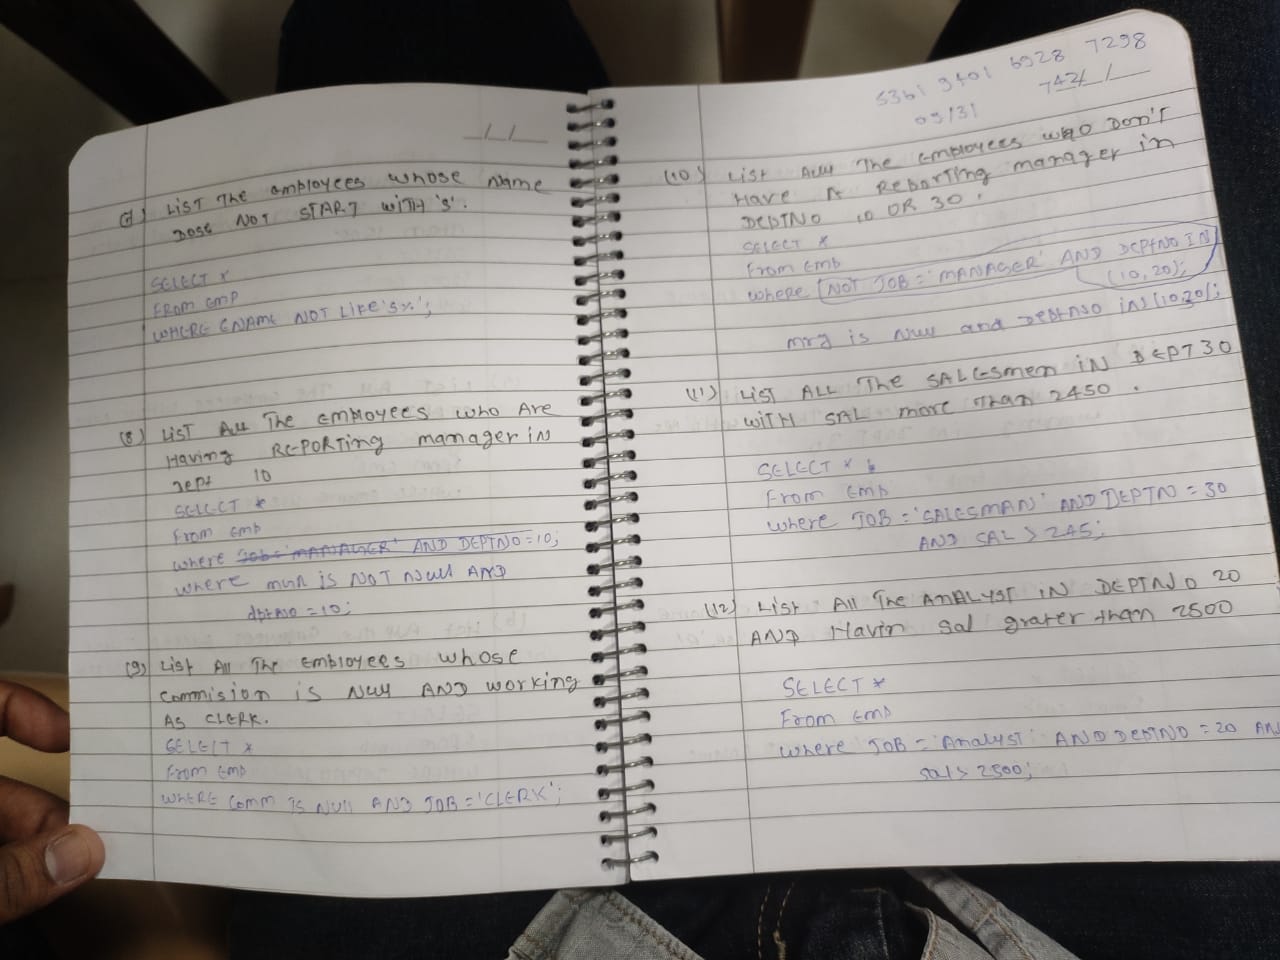 _/_/_
(7) LIST The employees whose Name
DOSE NOT START WITH 'S'.
SELECT *
FROM emp
WHERE ENAME NOT LIKE 'S%';
(8) LIST ALL The employees who Are
Having REPORTING manager in
Dept 10
SELECT *
From emp
where JOB = 'MANAGER' AND DEPTNO = 10;
where is NOT NULL AND
dptno = 10;
(9) List All The employees whose
Commision is Null AND working
AS CLERK.
SELECT *
From emp
WHERE comm is Null AND JOB = 'CLERK';
(10) List All The employees who DON'T
Have A Reporting manager in
DEPTNO 10 OR 30.
SELECT *
From emp
where (NOT JOB = 'MANAGER' AND DEPTNO IN
(10,20);
mrg is Null and Deptno in (10,30);
(11) LIST ALL The SALESmen iN DEPT 30
WITH SAL more Than 2450.
SELECT *
From emp
where JOB = 'SALESMAN' AND DEPTN = 30
AND SAL > 245;
(12) List All The ANALYST IN DEPTNO 20
AND Havin sal grater than 2500
SELECT *
From emp
where JOB = 'Analyst' AND DEPTNO = 20 AN
sal > 2500;